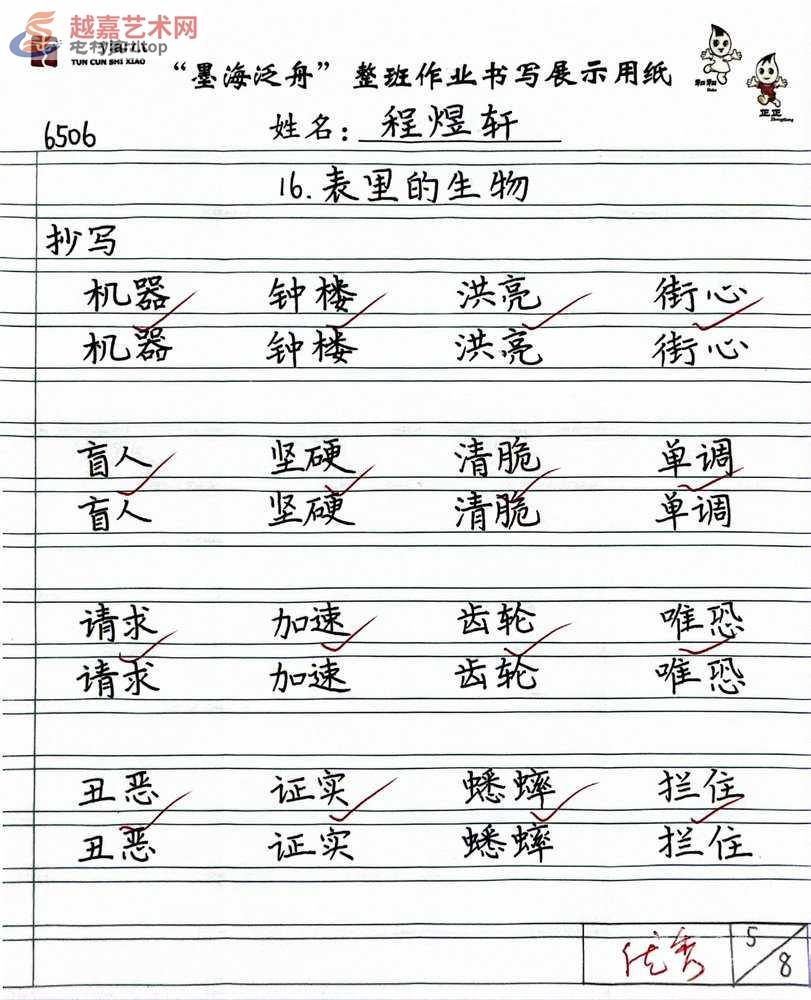 越嘉艺术网
yjart.top
TUN CUN SHI XIAO
“墨海泛舟”整班作业书写展示用纸
和和
正正
6506 姓名：程煜轩
16.表里的生物
抄写
机器 钟楼 洪亮 街心
机器 钟楼 洪亮 街心
盲人 坚硬 清脆 单调
盲人 坚硬 清脆 单调
请求 加速 齿轮 唯恐
请求 加速 齿轮 唯恐
丑恶 证实 蟋蟀 拦住
丑恶 证实 蟋蟀 拦住
优秀 5/8